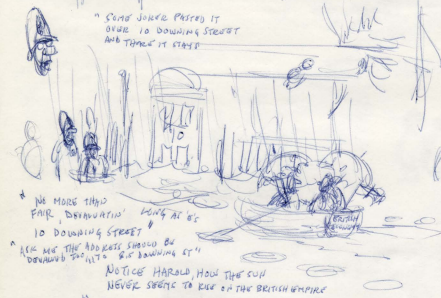 "SOME JOKER PASTED IT
OVER 10 DOWNING STREET
AND THERE IT STAYS
10
BRITISH
"NO MORE THAN
FAIR, DEVALUATIN' LONG AS E'S
10 DOWNING STREET"
"ASK ME THE ADDRESS SHOULD BE
DEVALUED TOO DOWNING ST"
NOTICE HAROLD, HOW THE SUN
NEVER SEEMS TO RISE ON THE BRITISH EMPIRE